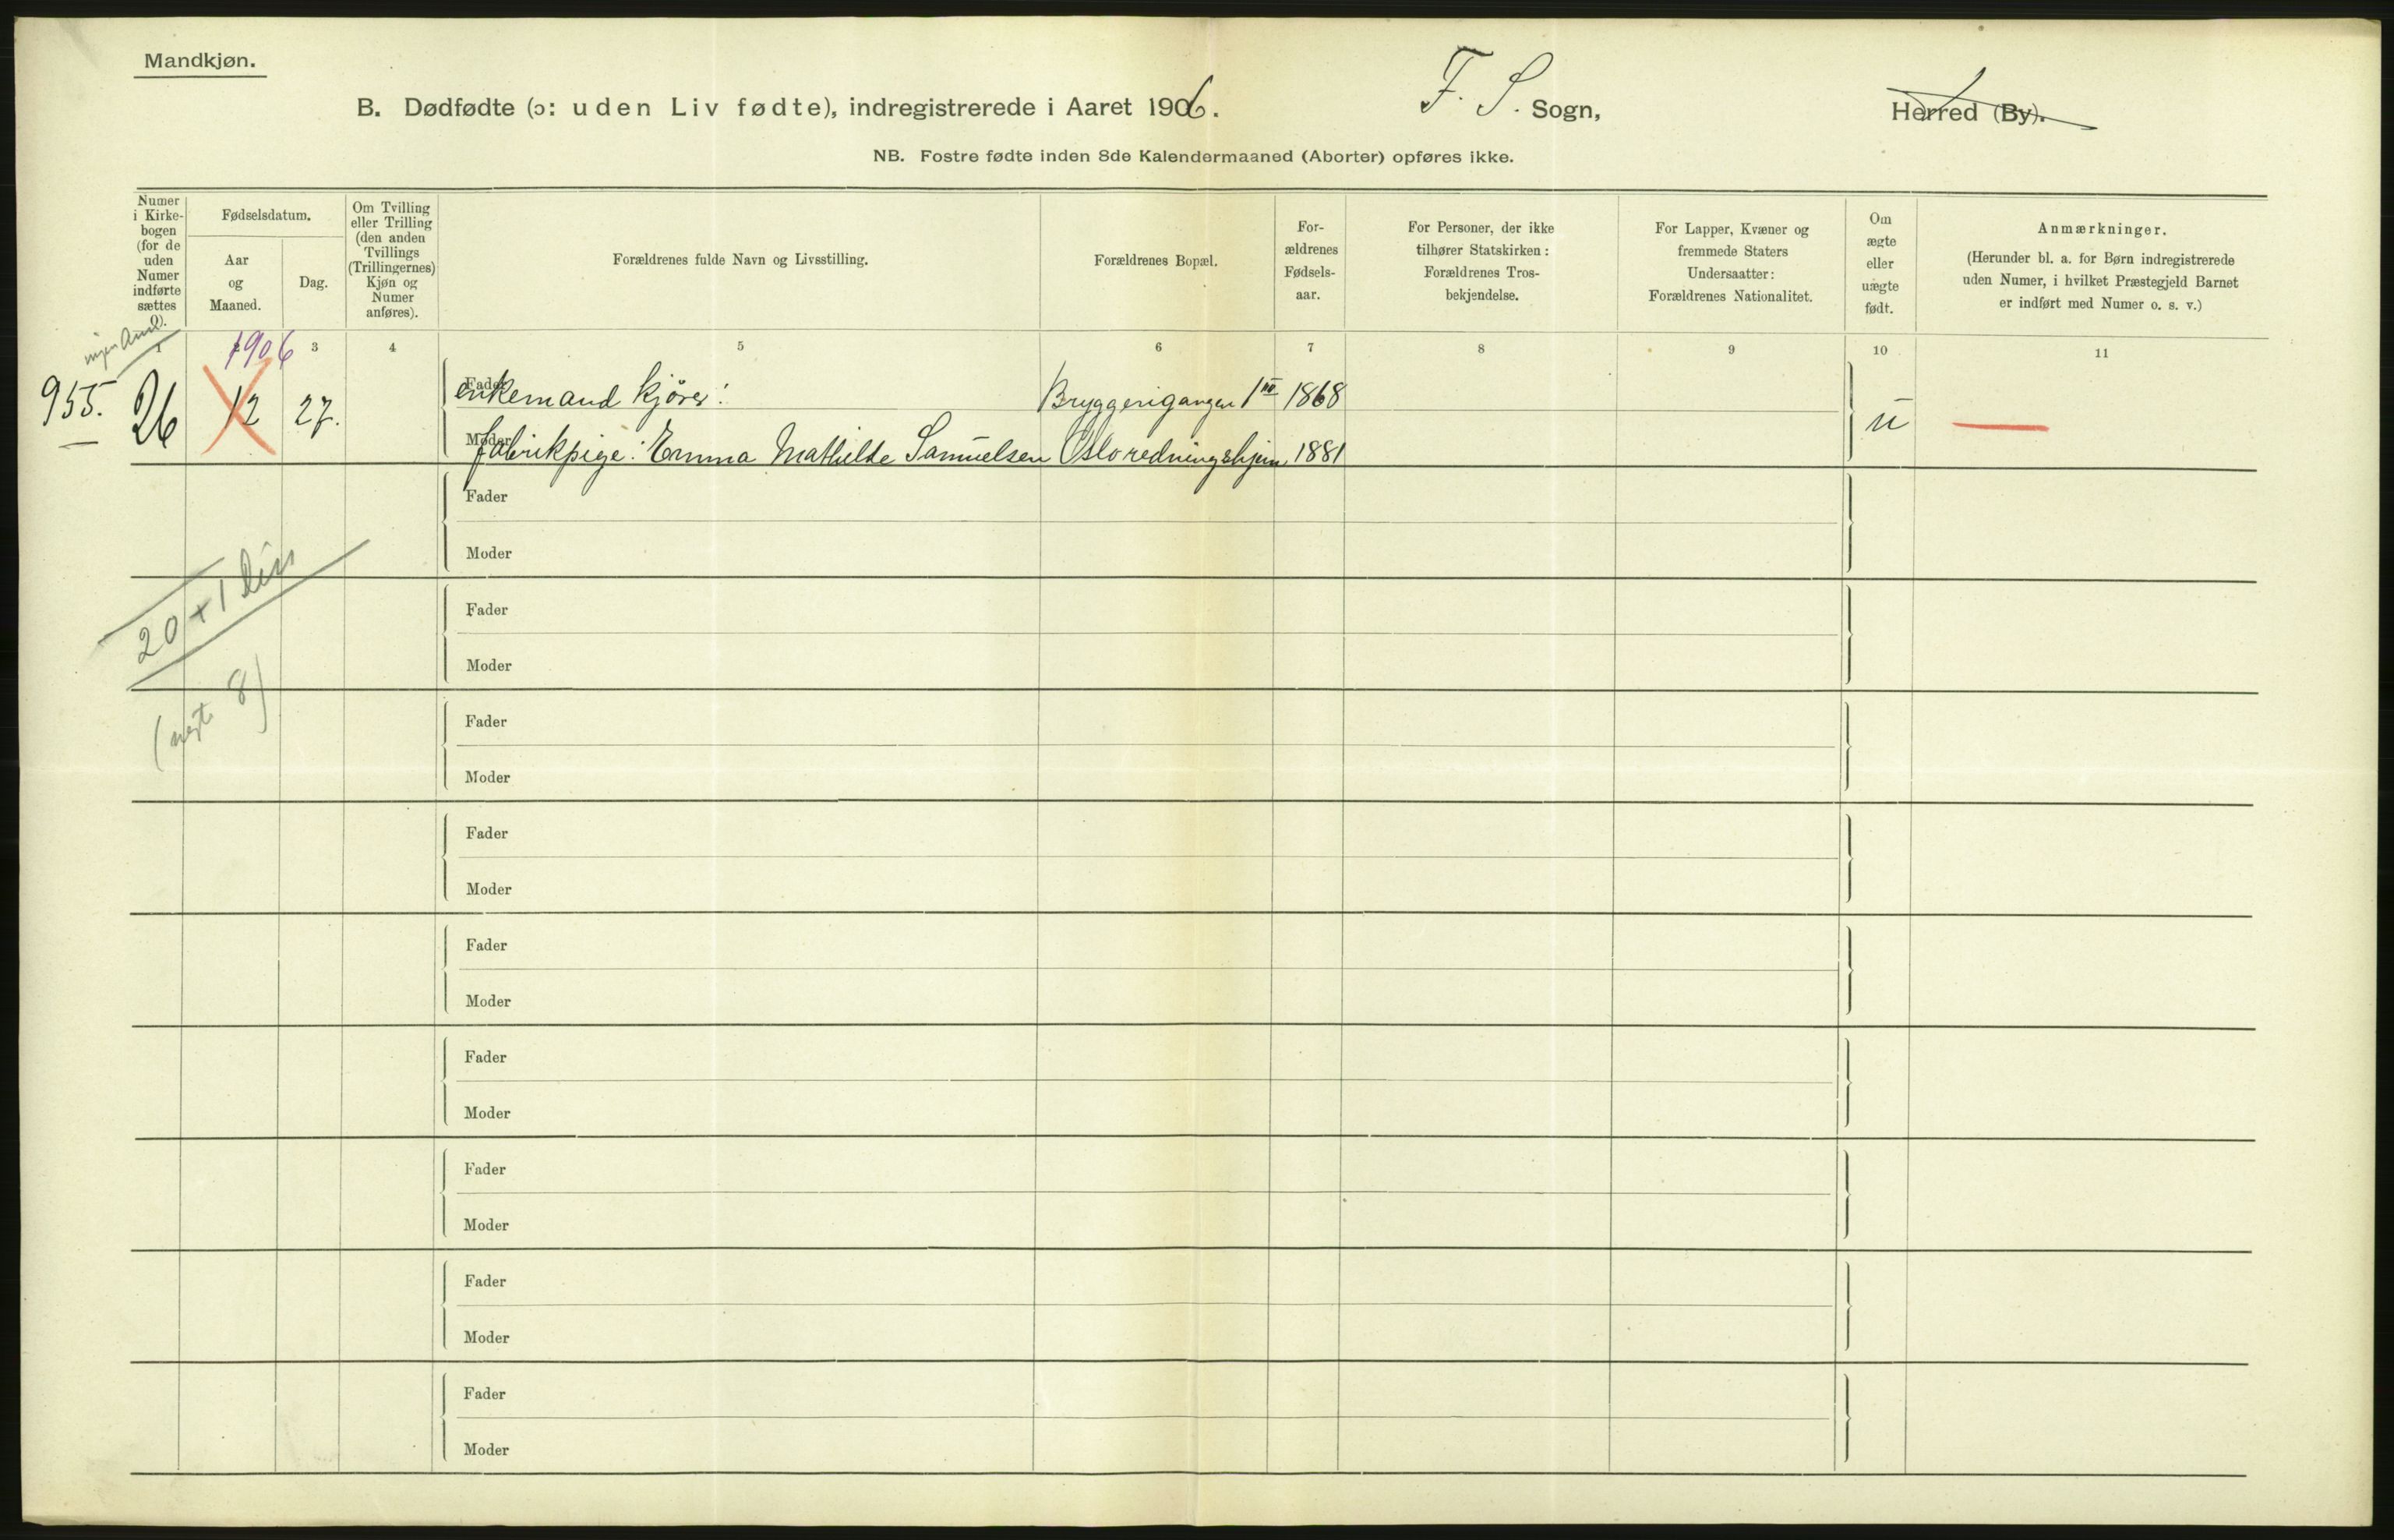 Mandkjøn.
B. Dødfødte (ɔ: uden Liv fødte), indregistrerede i Aaret 1906.
F. S. Sogn,
Herred (By).
NB. Fostre fødte inden 8de Kalendermaaned (Aborter) opføres ikke.
Numer
i Kirke-
bogen
(for de
uden
Numer
indførte
sættes
0).
Fødselsdatum.
Aar
og
Maaned.
Dag.
Om Tvilling
eller Trilling
(den anden
Tvillings
(Trillingernes)
Kjøn og
Numer
anføres).
Forældrenes fulde Navn og Livsstilling.
Forældrenes Bopæl.
For-
ældrenes
Fødsels-
aar.
For Personer, der ikke
tilhører Statskirken:
Forældrenes Tros-
bekjendelse.
For Lapper, Kvæner og
fremmede Staters
Undersaatter:
Forældrenes Nationalitet.
Om
ægte
eller
uægte
født.
Anmærkninger.
(Herunder bl. a. for Børn indregistrerede
uden Numer, i hvilket Præstegjeld Barnet
er indført med Numer o. s. v.)
1 2 3 4 5 6 7 8 9 10 11
1906
955. 26 12 27.
Fader enkemand kjører: Bryggerigangen 1 1868
Moder fabrikpige: Emma Mathilde Samuelsen Oslo redningshjem 1881
u
Fader
Moder
20 + 1
Fader
Moder
8)
Fader
Moder
Fader
Moder
Fader
Moder
Fader
Moder
Fader
Moder
Fader
Moder
Fader
Moder